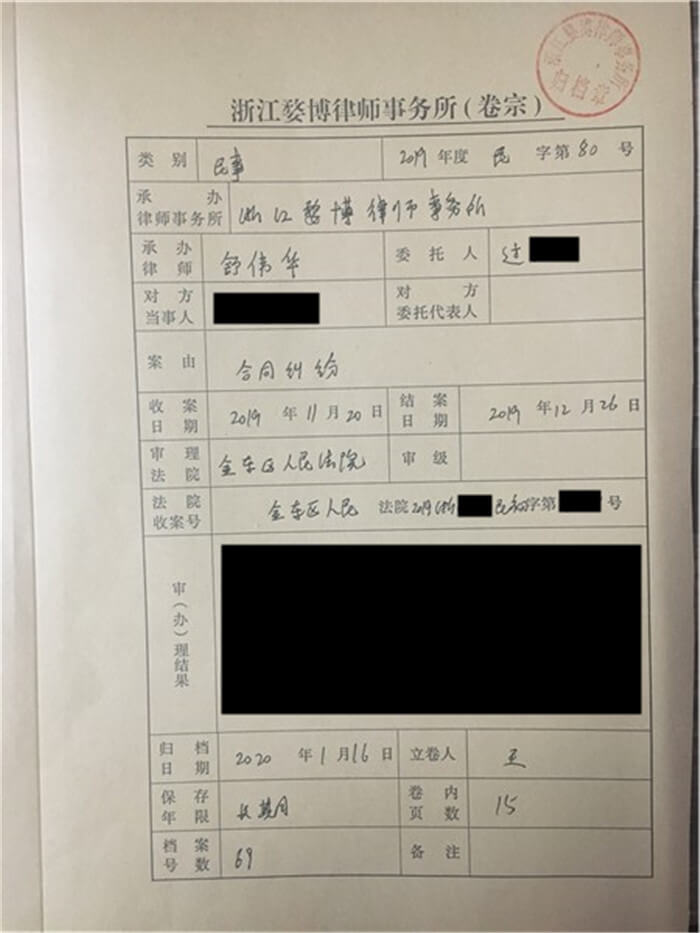 浙江婺博律师事务所
归档章
浙江婺博律师事务所(卷宗)
类别 民事 2019年度 民 字第80号
承办
律师事务所 浙江婺博律师事务所
承办
律师 舒伟华 委托人 过
对方
当事人 对方
委托代表人
案由 合同纠纷
收案
日期 2019年11月20日 结案
日期 2019年12月26日
审理
法院 金东区人民法院 审级
法院
收案号 金东区人民 法院2019浙 民初字第 号
审(办)理结果
归档
日期 2020年1月16日 立卷人 王
保存
年限 长期 卷内
页数 15
档案
号数 69 备注